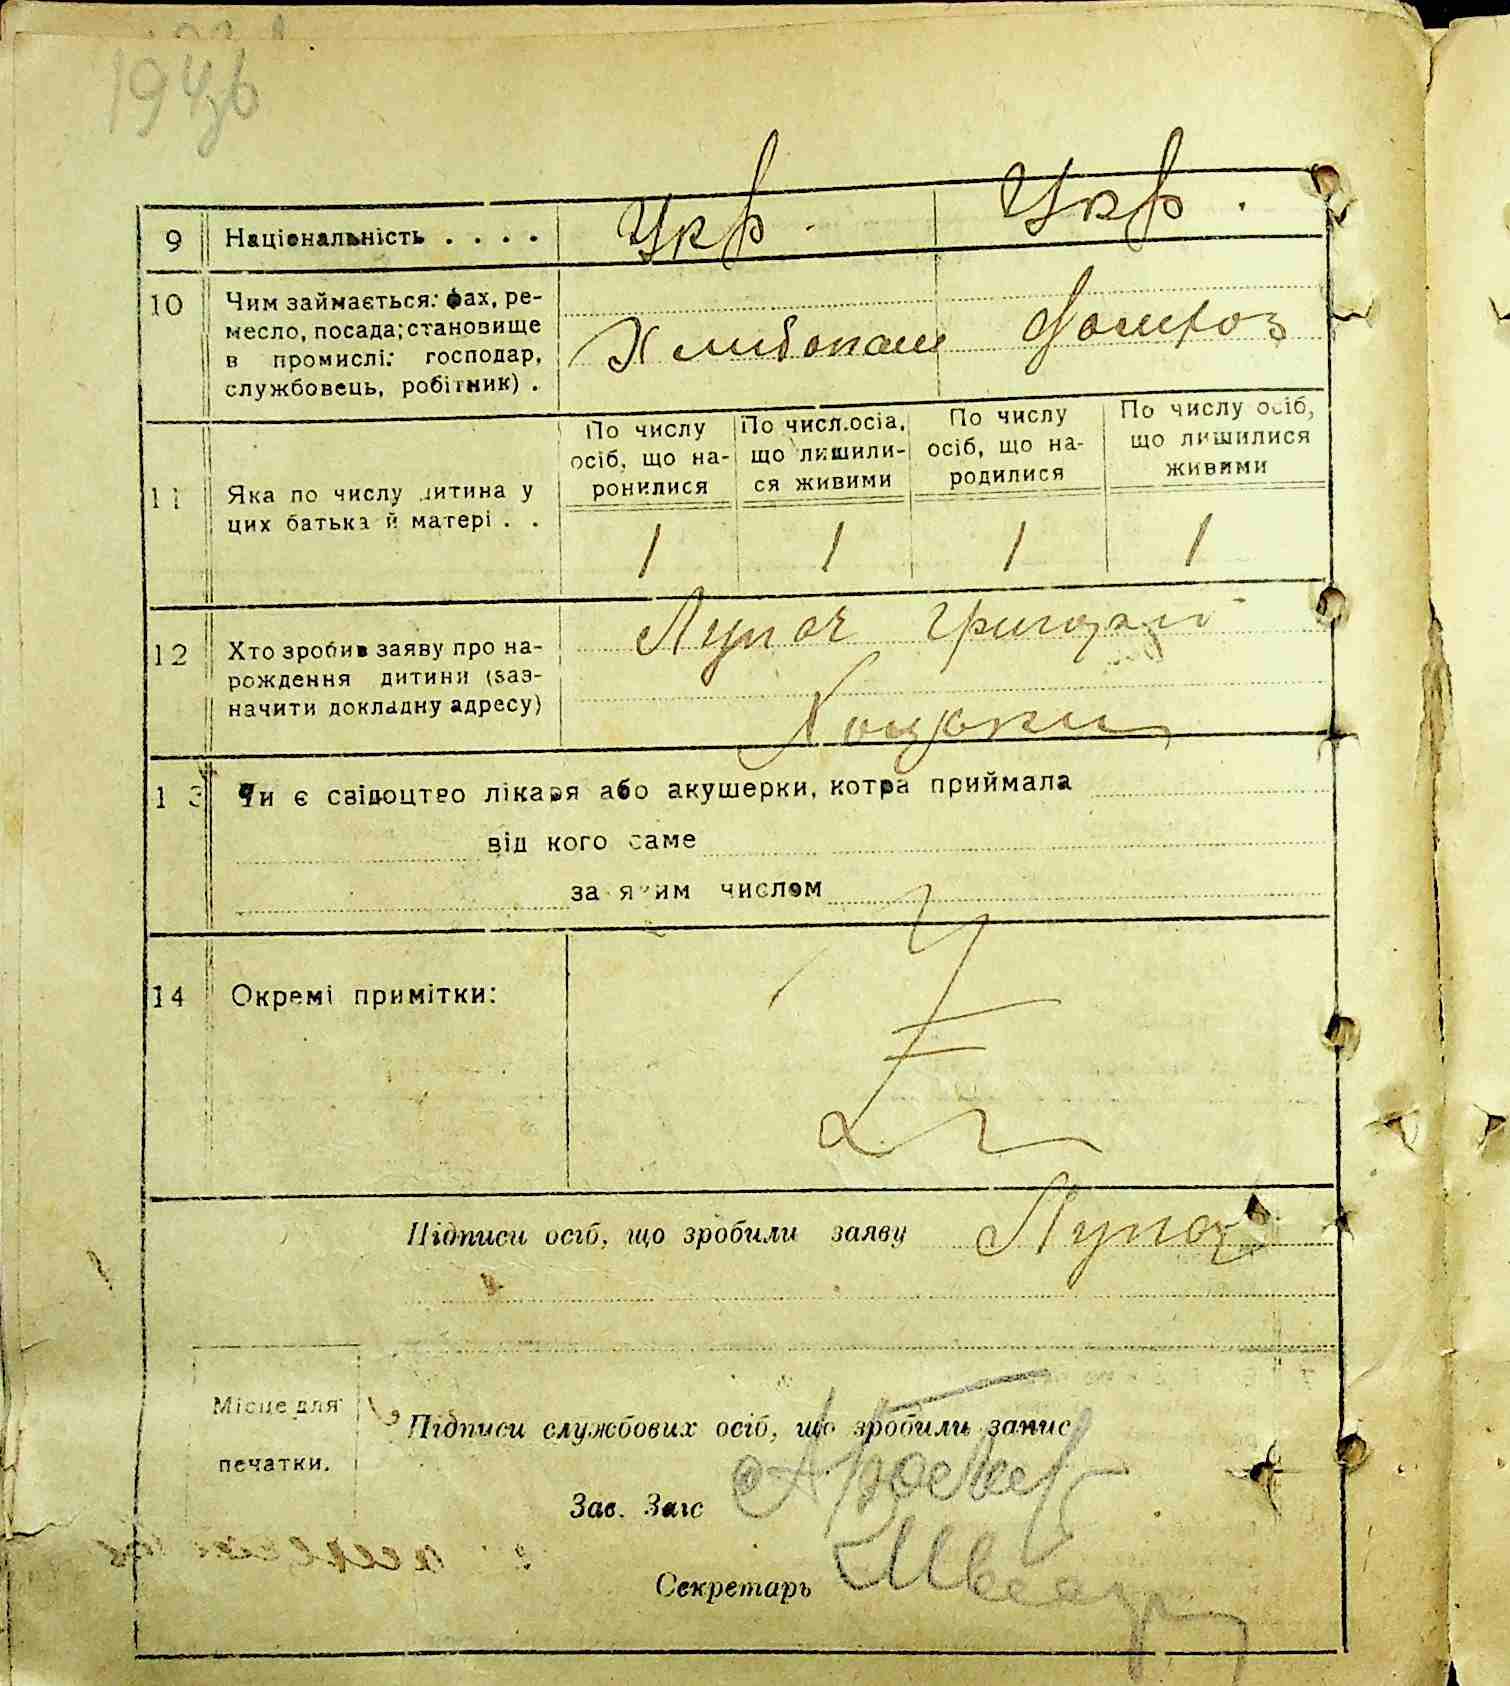 9 Національність . . . . Укр. Укр.
10 Чим займається: фах, ре-
месло, посада; становище
в промислі: господар,
службовець, робітник) .
Хлибопаш домхоз
По числу осіб, що на- ронилися
По числ.осіа, що лишили- ся живими
По числу осіб, що на- родилися
По числу осіб, що лишилися живими
11 Яка по числу дитина у
цих батька й матері . .
1 1 1 1
12 Хто зробив заяву про на-
рождення дитини (заз-
начити докладну адресу)
Лупач Григорій
Коцюбки
13 Чи є свідоцтво лікаря або акушерки, котра приймала
від кого саме
за яким числом
14 Окремі примітки:
Підписи осіб, що зробили заяву Лупач
Місце для
печатки.
Підписи службових осіб, що зробили запис
Зав. Загс
Секретарь